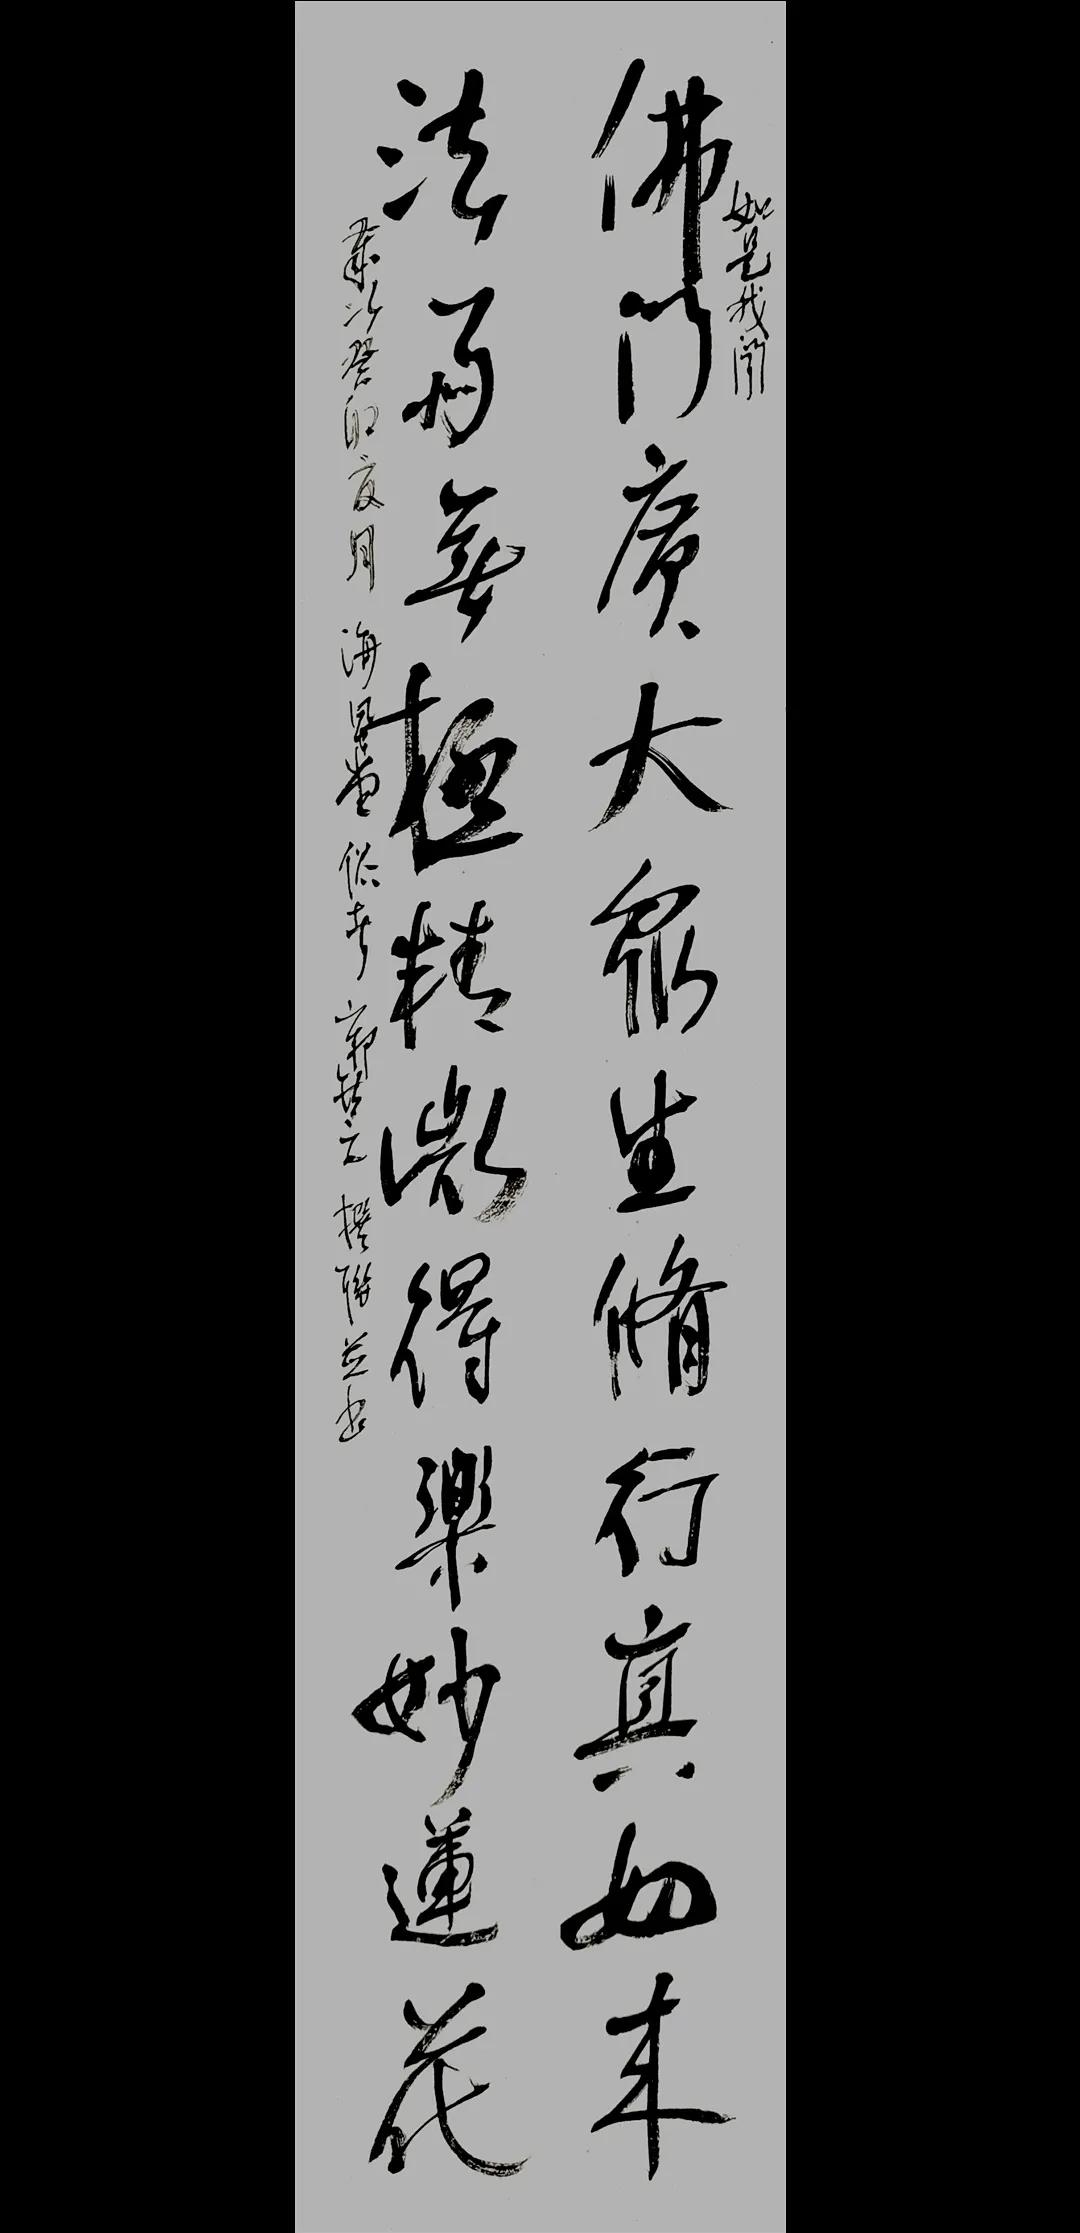 如是我聞
佛門廣大眾生脩行真如来
法雨無極精微得樂妙蓮花
歲次癸卯夏月 海 堂 郭 云 撰聯並書